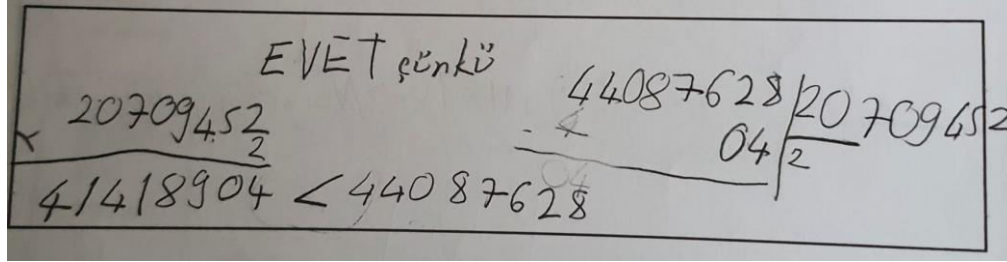 EVET çünkü
20709452
x 2
41418904 < 44087628
44087628 | 20709452
- 4 04 2
04